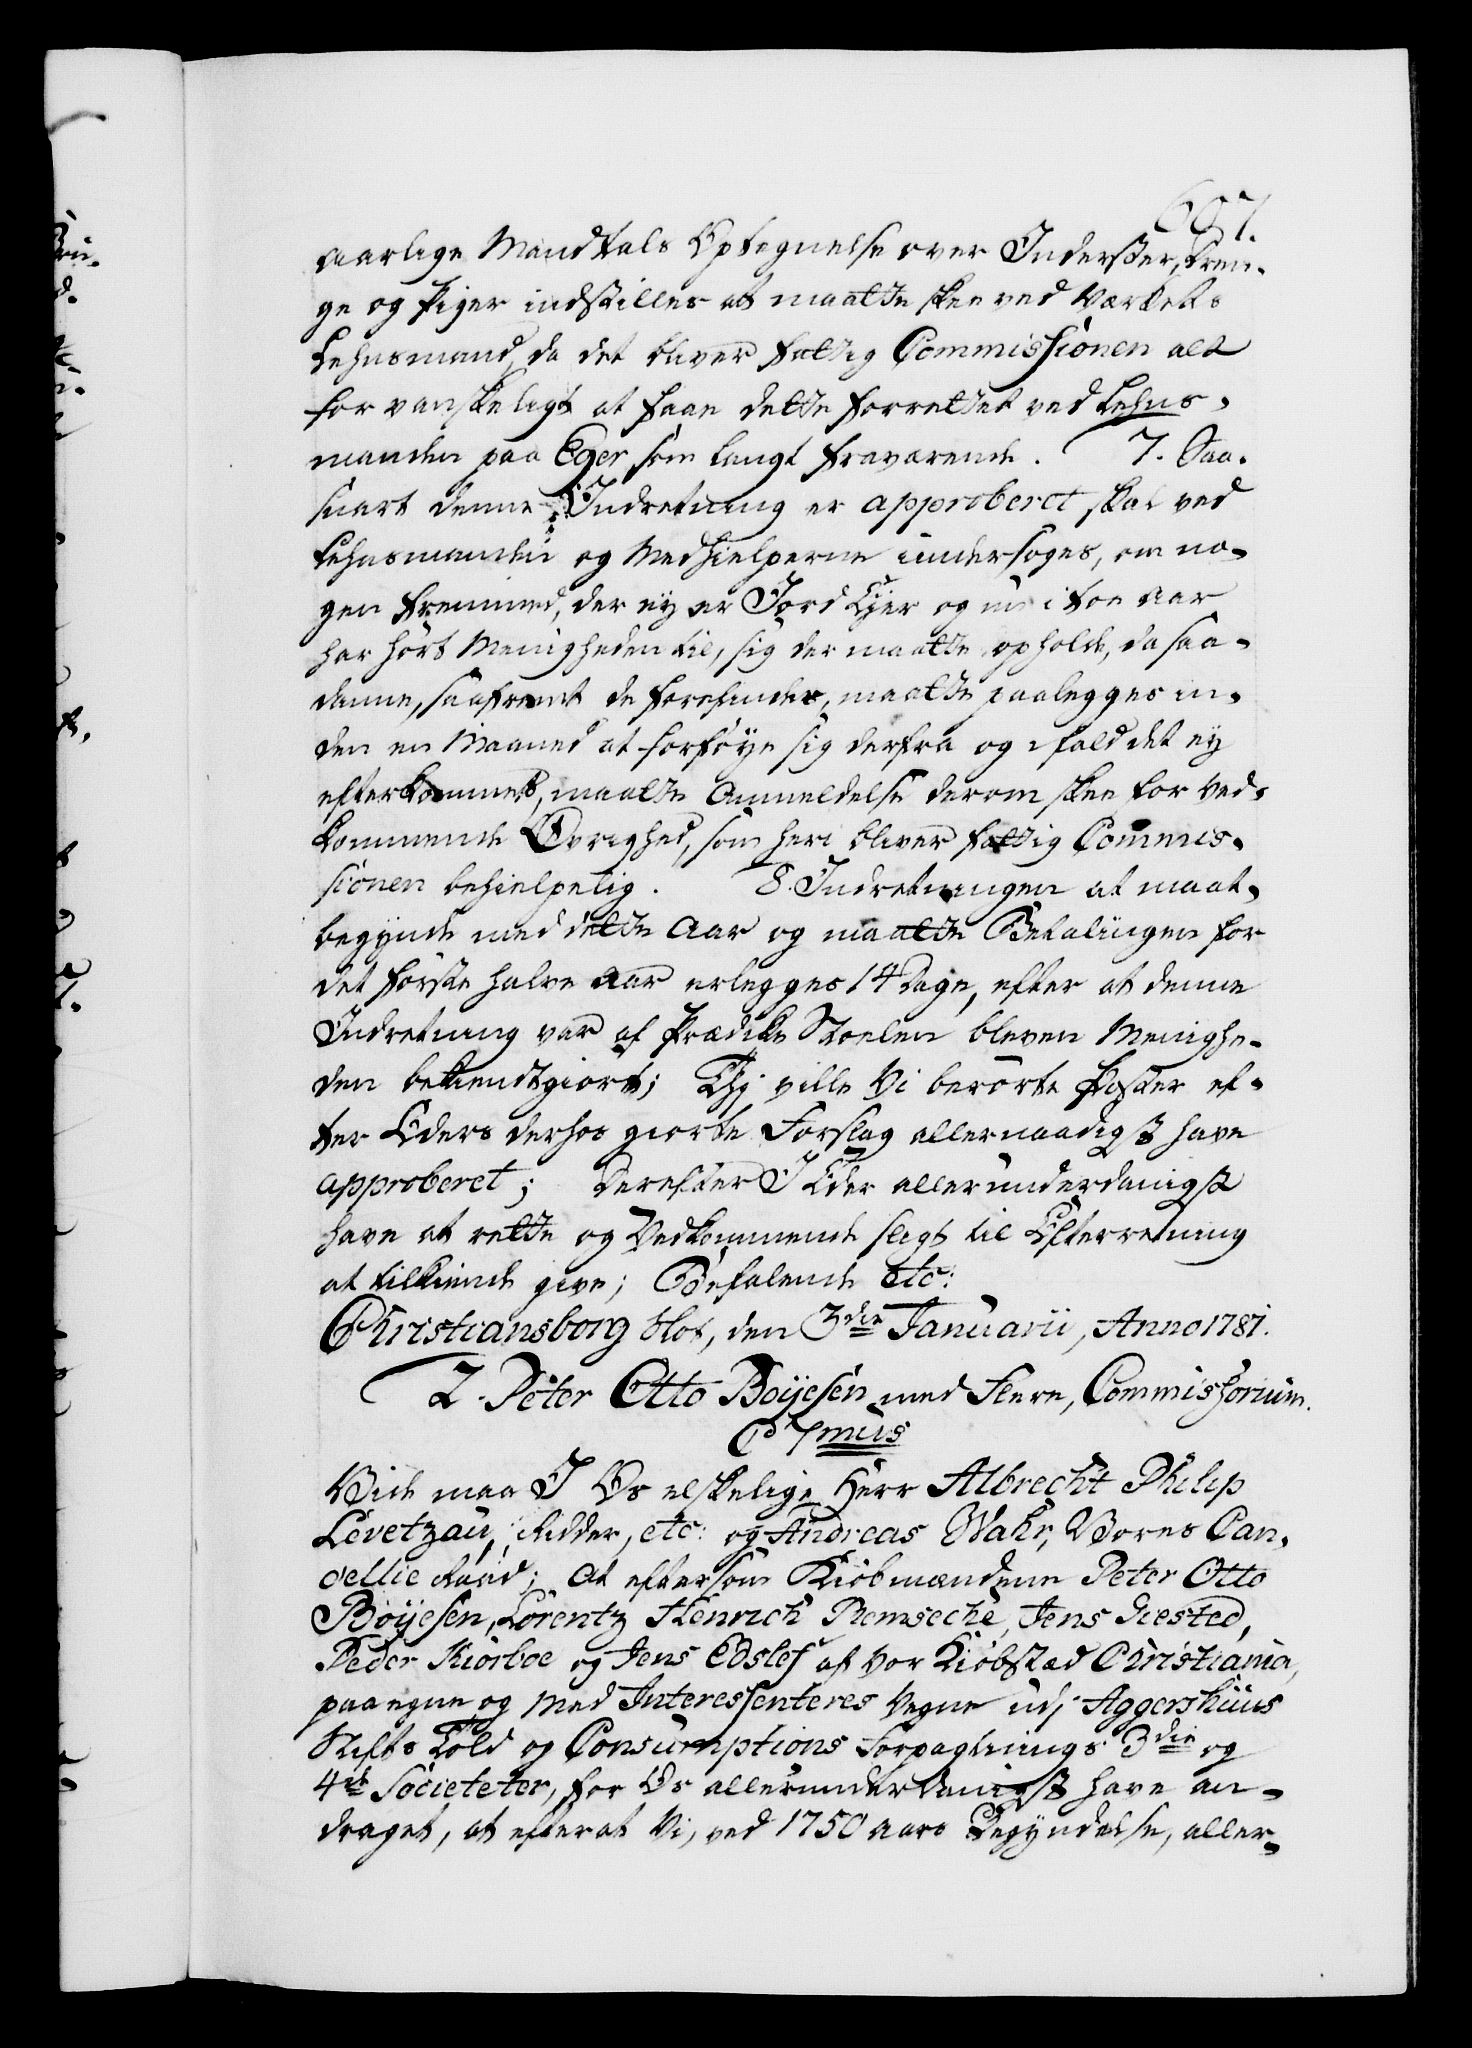 687.
aarlige Mandtals Optegnelse over Inderster, Dren-
ge og Piger indstilles at maatte skee ved Værkets
Lehnsmand, da det bliver Fattig Commissionen alt
for vanskeligt at faae dette forrettet ved Lehns-
manden paa Eger som langt fraværende. 7. Saa-
snart denne Indretning er approberet skal ved
Lehnsmanden og Medhielperne undersøges, om no-
gen fremmed, der ey er Jord Ejer og nu i toe Aar
har hørt Menigheden til, sig der maatte opholde, da saa-
danne, saafremt de forefindes, maatte paalegges in-
den en Maaned at forføye sig derfra og i fald det ey
efterkommes, maatte Anmeldelse derom skee for Ved-
kommende Øvrighed, som heri bliver Fattig Commis-
sionen behielpelig. 8. Indretningen at maat-
begynde med dette Aar og maatte Betalingen for
det første halve Aar erlegges 14 Dage, efter at denne
Indretning var af Prædike Stoelen bleven Menighe-
den bekiendtgiort; Thi ville Vi berørte Poster ef-
ter Eders derhos giorte Forslag allernaadigst have
approberet; Derefter I Eder allerunderdanigst
have at rette og Vedkommende sligt til Efterretning
at tilkiende give; Befalende etc:
Christiansborg Slot, den 3die Januarii, Anno 1781.
2. Peter Otto Boÿesen med Flere, Commissorium.
C 7mus
Vide maa I Os elskelige Herr Albrecht Philip
Levetzau, Ridder, etc: og Andreas Wahr, Vores Can-
cellie Raad; At eftersom Kiøbmændene Peter Otto
Boÿesen, Lorentz Henrich Remseche, Jens Giested,
Peder Kiorboe og Jens Edslef af vor Kiøbstad Christiania,
paa egne og Med Interessenteres Vegne udj Aggershuus
Stifts Told og Consumptions Forpagtnings 3die og
4de Societeter, for Os allerunderdanigst have an-
draget, at efterat Vi, ved 1750 Aars Begyndelse, aller-